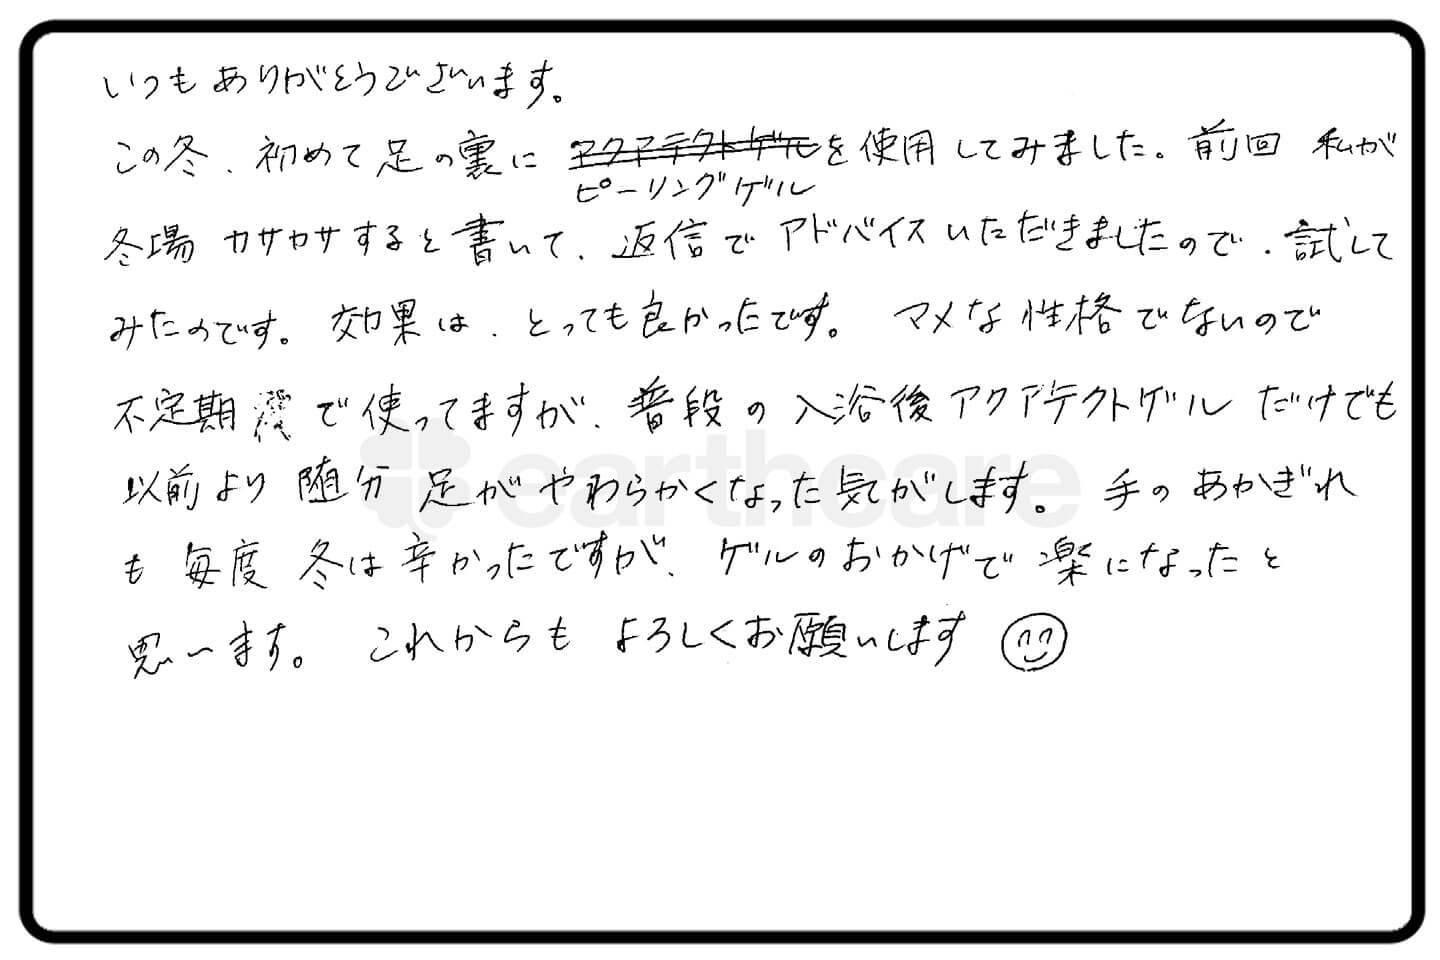 いつもありがとうございます。
この冬、初めて足の裏に アクアテクトゲル を使用してみました。前回 私が
ピーリングゲル
冬場 カサカサすると書いて、返信でアドバイスいただきましたので、試して
みたのです。効果は、とっても良かったです。 マメな性格でないので
不定期 で使ってますが、普段の入浴後アクアテクトゲル だけでも
以前より 随分 足がやわらかくなった気がします。 手のあかぎれ
も 毎度 冬は辛かったですが、ゲルのおかげで楽になったと
思います。 これからも よろしくお願いします
earthcare